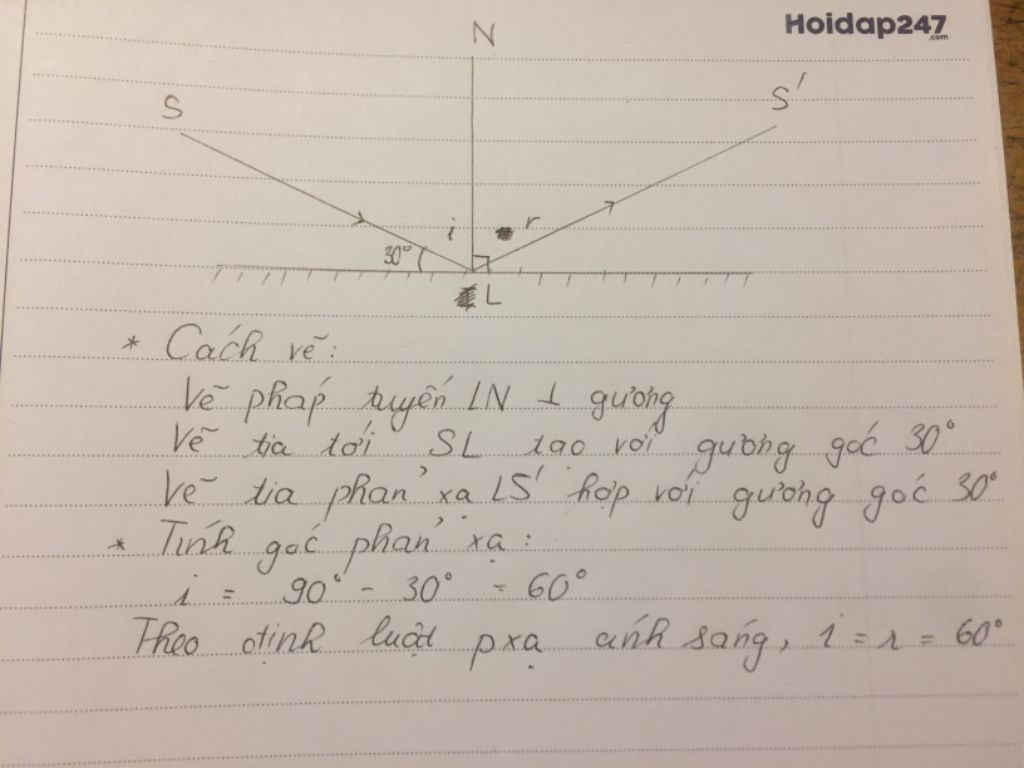 Hoidap247
.com
N
S
S'
i
r
30°
L
* Cách vẽ:
Vẽ pháp tuyến LN ⊥ gương
Vẽ tia tới SL tạo với gương góc 30°
Vẽ tia phản xạ LS' hợp với gương góc 30°
* Tính góc phản xạ:
i = 90° - 30° = 60°
Theo định luật pxạ ánh sáng, i = r = 60°